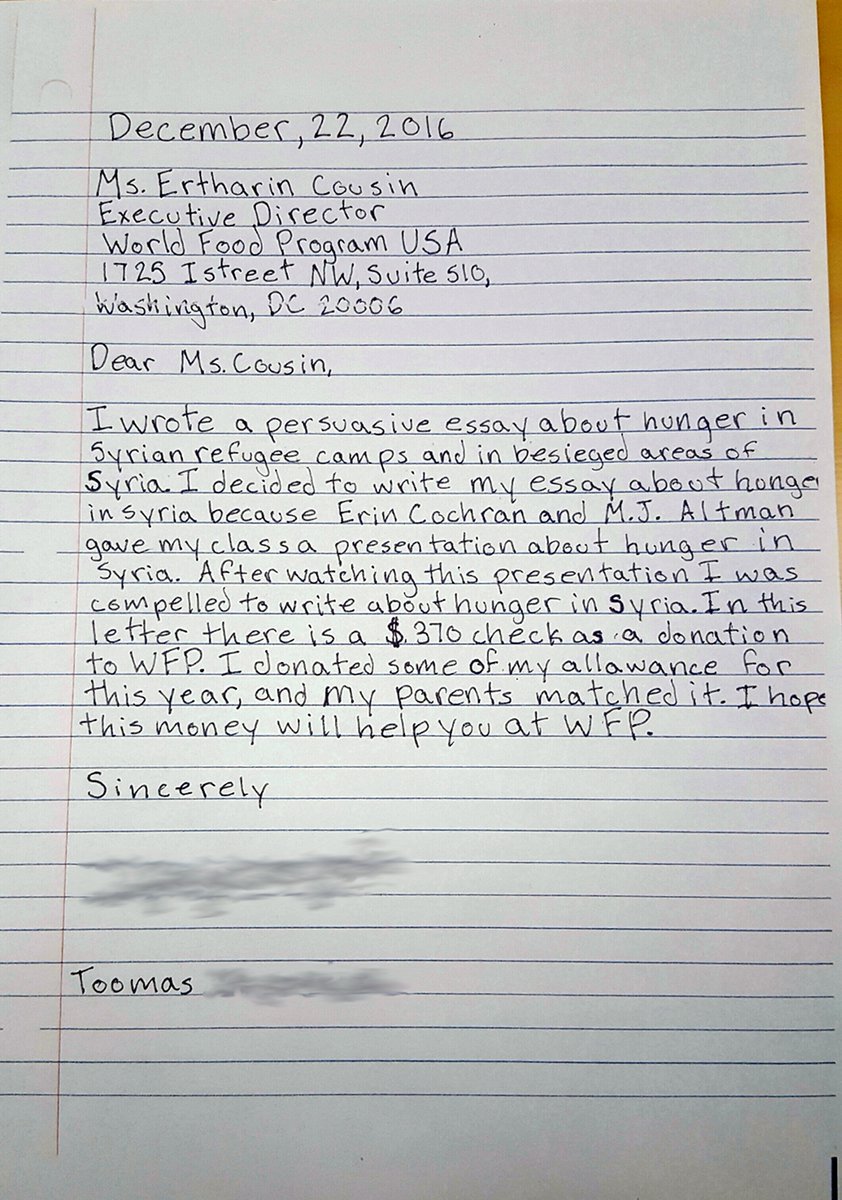 December, 22, 2016
Ms. Ertharin Cousin
Executive Director
World Food Program USA
1725 I street NW, Suite 510,
Washington, DC 20006
Dear Ms. Cousin,
I wrote a persuasive essay about hunger in
Syrian refugee camps and in besieged areas of
Syria. I decided to write my essay about hunger
in Syria because Erin Cochran and M.J. Altman
gave my class a presentation about hunger in
Syria. After watching this presentation I was
compelled to write about hunger in Syria. In this
letter there is a $.370 check as a donation
to WFP. I donated some of my allawance for
this year, and my parents matched it. I hope
this money will help you at WFP.
Sincerely
Toomas